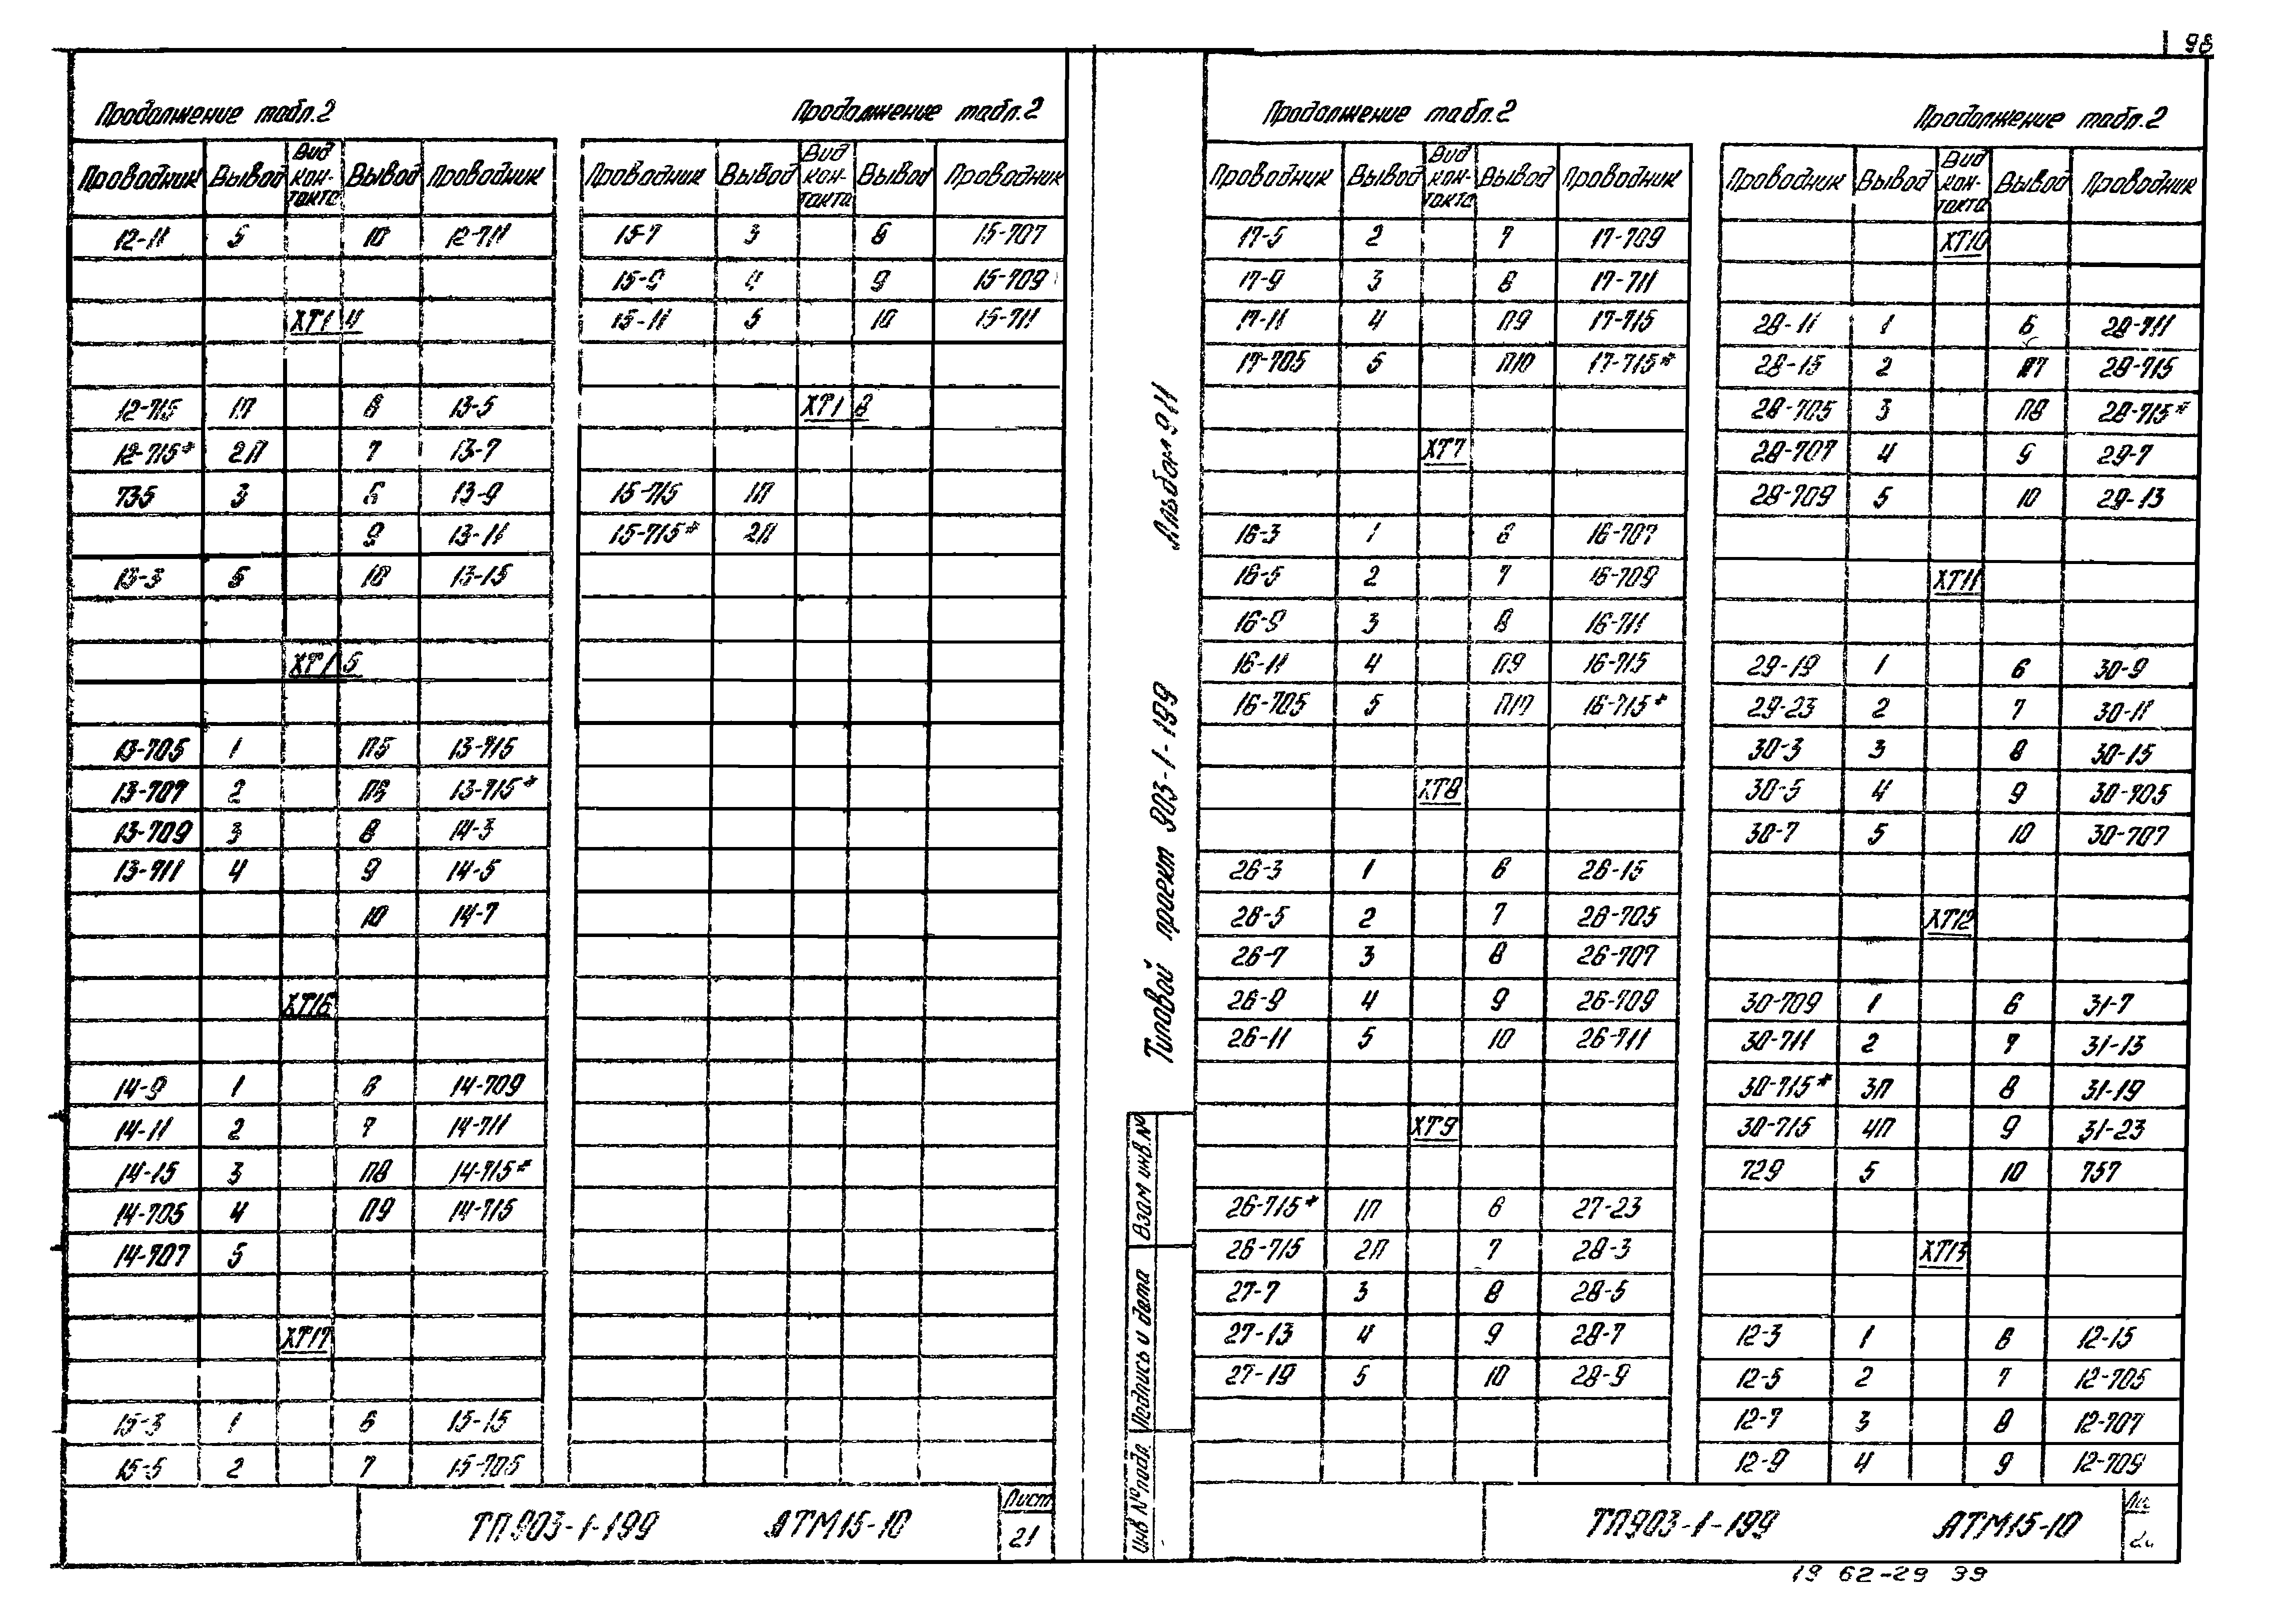 98
Продолжение табл.2
Проводник Вывод Вид контакта Вывод Проводник
12-11 5 10 12-711
ХТ14
12-715 1П 6 13-5
12-715* 2П 7 13-7
735 3 8 13-9
9 13-11
13-3 5 10 13-15
ХТ15
13-705 1 П5 13-715
13-707 2 П6 13-715*
13-709 3 8 14-3
13-711 4 9 14-5
10 14-7
ХТ16
14-9 1 6 14-709
14-11 2 7 14-711
14-15 3 П8 14-715*
14-705 4 П9 14-715
14-707 5
ХТ17
15-3 1 6 15-15
15-5 2 7 15-705
Продолжение табл.2
Проводник Вывод Вид контакта Вывод Проводник
15-7 3 8 15-707
15-9 4 9 15-709
15-11 5 10 15-711
ХТ18
15-715 1П
15-715* 2П
ТП903-1-199 АТМ15-10 Лист 21
Альбом 9.11
Типовой проект 903-1-199
Взам инв.№
Подпись и дата
Инв №подл.
Продолжение табл.2
Проводник Вывод Вид контакта Вывод Проводник
17-5 2 7 17-709
17-9 3 8 17-711
17-11 4 П9 17-715
17-705 5 П10 17-715*
ХТ7
16-3 1 6 16-707
16-5 2 7 16-709
16-9 3 8 16-711
16-11 4 П9 16-715
16-705 5 П10 16-715*
ХТ8
26-3 1 6 26-15
26-5 2 7 26-705
26-7 3 8 26-707
26-9 4 9 26-709
26-11 5 10 26-711
ХТ9
26-715* 1П 6 27-23
26-715 2П 7 28-3
27-7 3 8 28-5
27-13 4 9 28-7
27-19 5 10 28-9
Продолжение табл.2
Проводник Вывод Вид контакта Вывод Проводник
ХТ10
28-11 1 6 28-711
28-15 2 П7 28-715
28-705 3 П8 28-715*
28-707 4 9 29-7
28-709 5 10 29-13
ХТ11
29-19 1 6 30-9
29-23 2 7 30-11
30-3 3 8 30-15
30-5 4 9 30-705
30-7 5 10 30-707
ХТ12
30-709 1 6 31-7
30-711 2 7 31-13
30-715* 3П 8 31-19
30-715 4П 9 31-23
729 5 10 757
ХТ13
12-3 1 6 12-15
12-5 2 7 12-705
12-7 3 8 12-707
12-9 4 9 12-709
ТП903-1-199 АТМ15-10
19 62-29 39